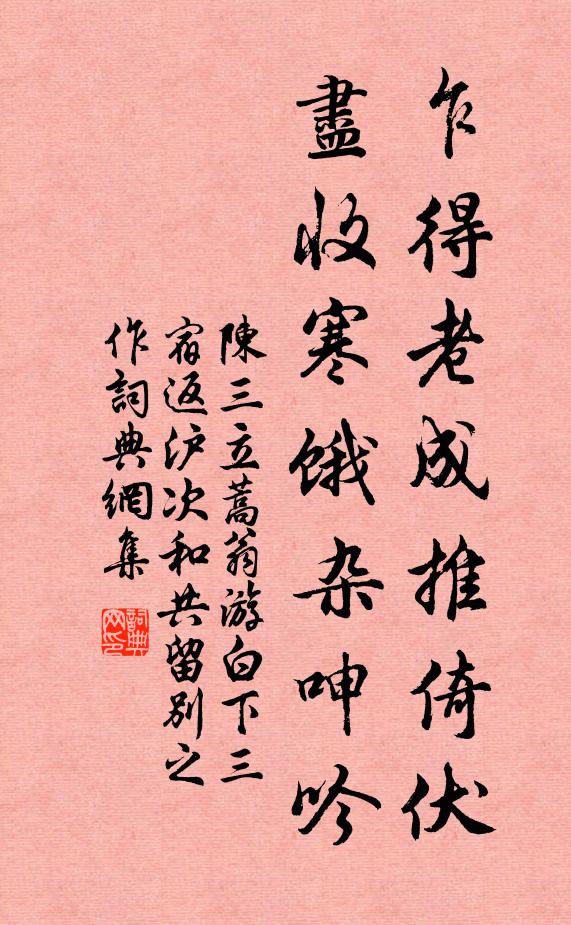 乍得老成推倚伏
盡收寒饿杂呻吟
陳三立蒿翁游白下三
宿返沪次和共留别之
作詞典網集
詞典网印